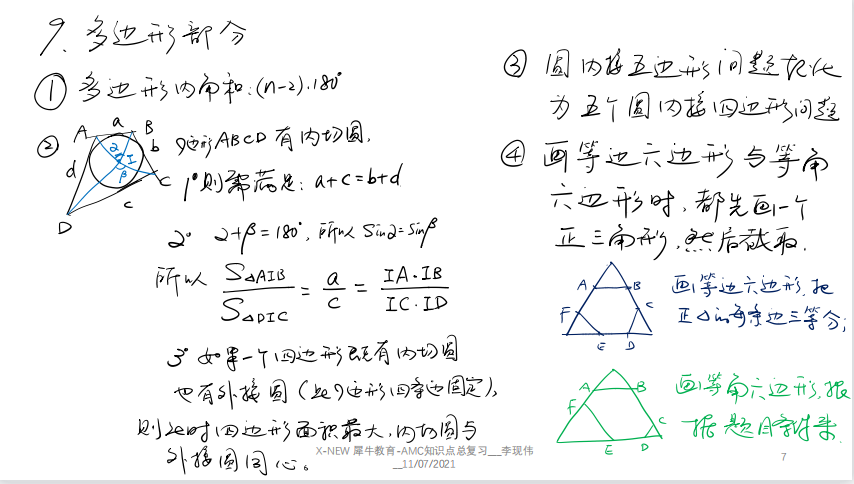 9. 多边形部分
① 多边形内角和:(n-2)·180°
② A a B
b
I
d
α
β
C
c
D
四边形ABCD有内切圆,
1° 则需满足: a+c=b+d
2° α+β=180°, 所以 Sinα=Sinβ
所以 S△AIB / S△DIC = a / c = IA·IB / IC·ID
3° 如果一个四边形既有内切圆
也有外接圆(此四边形四条边固定),
则此时四边形面积最大,内切圆与
外接圆同心。
③ 圆内接五边形问题转化
为五个圆内接四边形问题
④ 画等边六边形与等角
六边形时,都先画一个
正三角形,然后截取.
A B
F C
E D
画等边六边形,把
正△的每条边三等分;
A B
F C
E D
画等角六边形,根
据题目条件来.
X-NEW 犀牛教育-AMC知识点总复习__李现伟
__11/07/2021
7